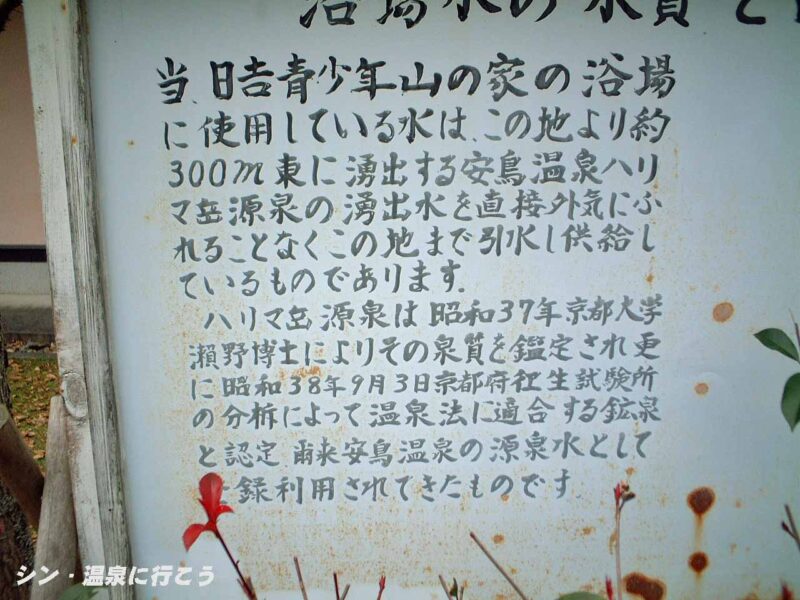 浴場水の水質と
当、日吉青少年山の家の浴場
に使用している水は、この地より約
300m東に湧出する安鳥温泉ハリ
マ岳源泉の湧出水を直接外気にふ
れることなくこの地まで引水し供給し
ているものであります。
ハリマ岳源泉は昭和37年京都大学
瀬野博士によりその泉質を鑑定され更
に昭和38年9月3日京都府衛生試験所
の分析によって温泉法に適合する鉱泉
と認定 爾来安鳥温泉の源泉水として
録利用されてきたものです
シン・温泉に行こう